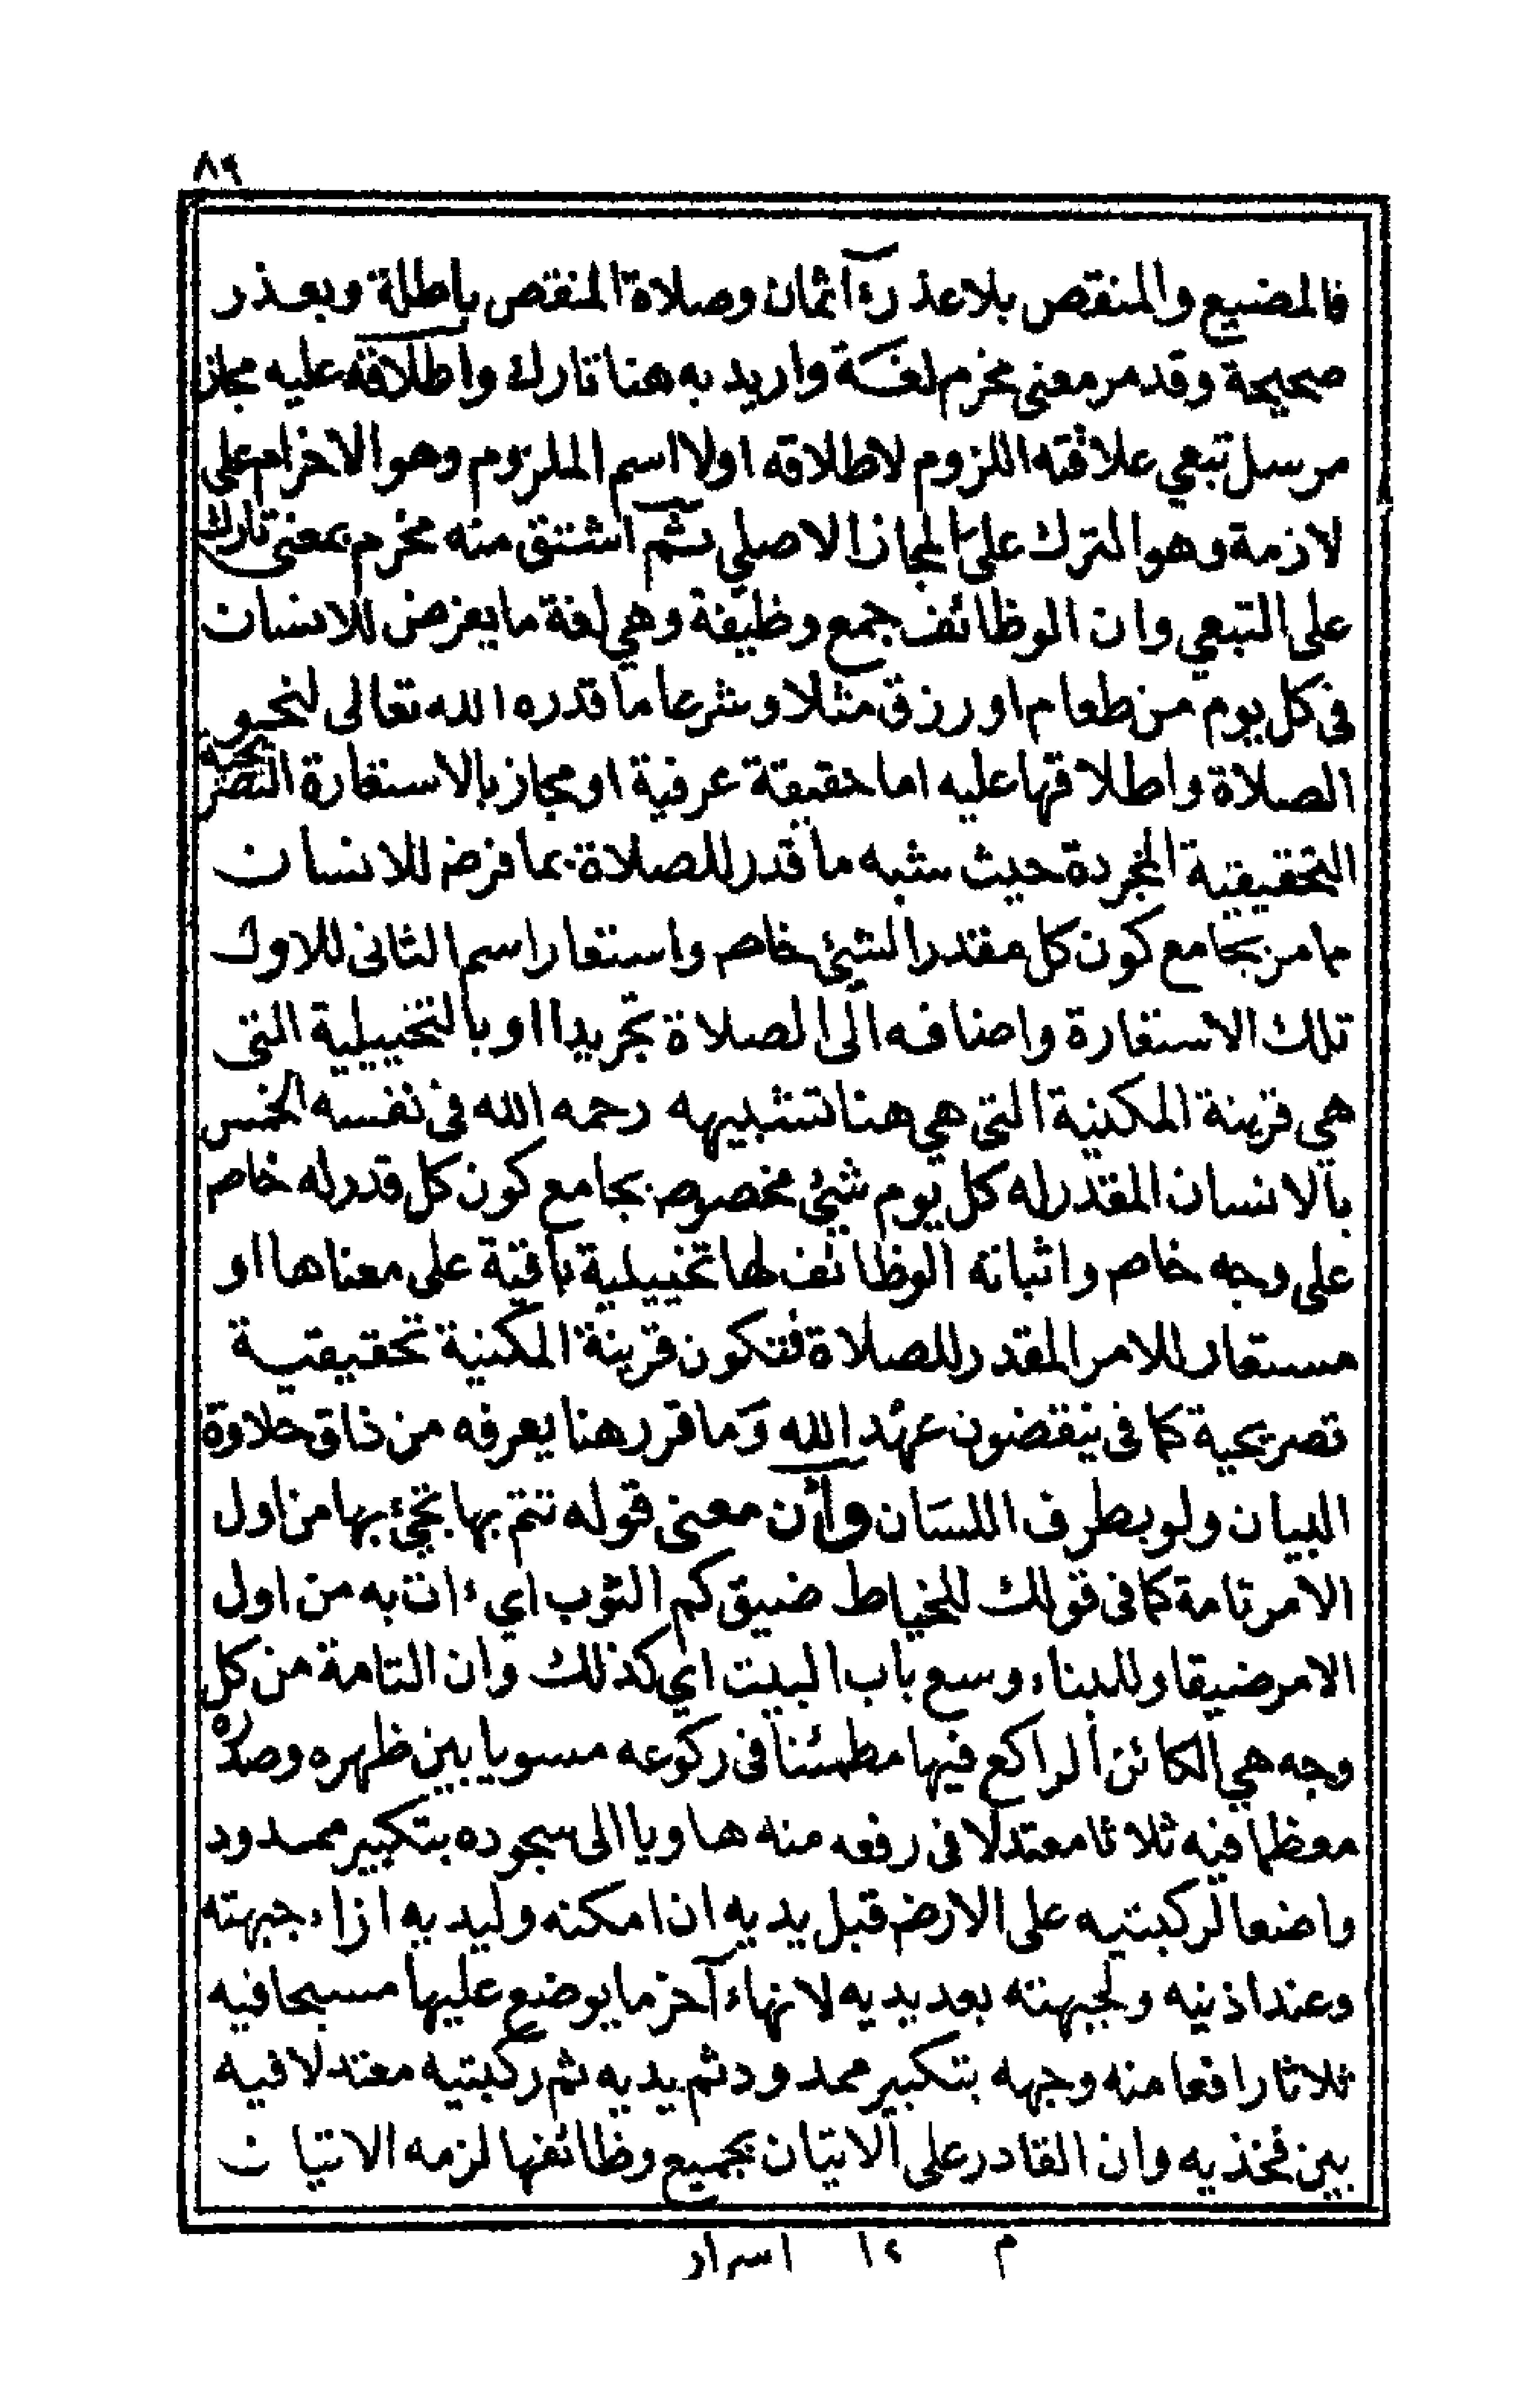 ٨٩
فالمضيع والمنقص بلا عذر ءآثمان وصلاة المنقص باطلة وبعذر
صحيحة وقد مر معنى مخرم لغة واريد به هنا تارك واطلاقه عليه مجاز
مرسل تبعي علاقته اللزوم لاطلاقه اولا اسم الملزوم وهو الاخرام على
لازمة وهو الترك على المجاز الاصلي ثم اشتق منه مخرم بمعنى تارك
على التبعي وان الوظائف جمع وظيفة وهي لغة ما يعرض للانسان
فى كل يوم من طعام او رزق مثلا وشرعا ما قدره الله تعالى لنحو
الصلاة واطلاقها عليه اما حقيقة عرفية او مجاز بالاستعارة التصريحية
التحقيقية المجردة حيث شبه ما قدر للصلاة بما فرض للانسان
مما مر بجامع كون كل مقدرا لشيئ خاص واستعار اسم الثانى للاول
تلك الاستعارة واضافه الى الصلاة تجريدا او بالتخييلية التى
هي قرينة المكنية التى هي هنا تشبيهه رحمه الله فى نفسه الخمس
بالانسان المقدر له كل يوم شيئ مخصوص بجامع كون كل قدر له خاص
على وجه خاص واثباته الوظائف لها تخييلية باقية على معناها او
مستعار للامر المقدر للصلاة فتكون قرينة المكنية تحقيقية
تصريحية كما فى ينقضون عهد الله وما قرر هنا يعرفه من ذاق حلاوة
البيان ولو بطرف اللسان وأن معنى قوله تتم بها تجئ بها من اول
الامر تامة كما فى قولك للخياط ضيق كم الثوب اي ءات به من اول
الامر ضيقا وللبناء وسع باب البيت اي كذلك وان التامة من كل
وجه هي الكائن الراكع فيها مطمئنا فى ركوعه مسويا بين ظهره وصدره
معظما فيه ثلاثا معتدلا فى رفعه منه هاويا الى سجوده بتكبير ممدود
واضعا لركبتيه على الارض قبل يديه ان امكنه وليديه ازاء جبهته
وعند اذنيه ولجبهته بعد يديه لانها ءآخر ما يوضع عليها مسبحا فيه
ثلاثا رافعا منه وجهه بتكبير ممدود ثم يديه ثم ركبتيه معتدلا فيه
بين فخذيه وان القادر على الاتيان بجميع وظائفها لزمه الاتيان
م ١٢ اسرار